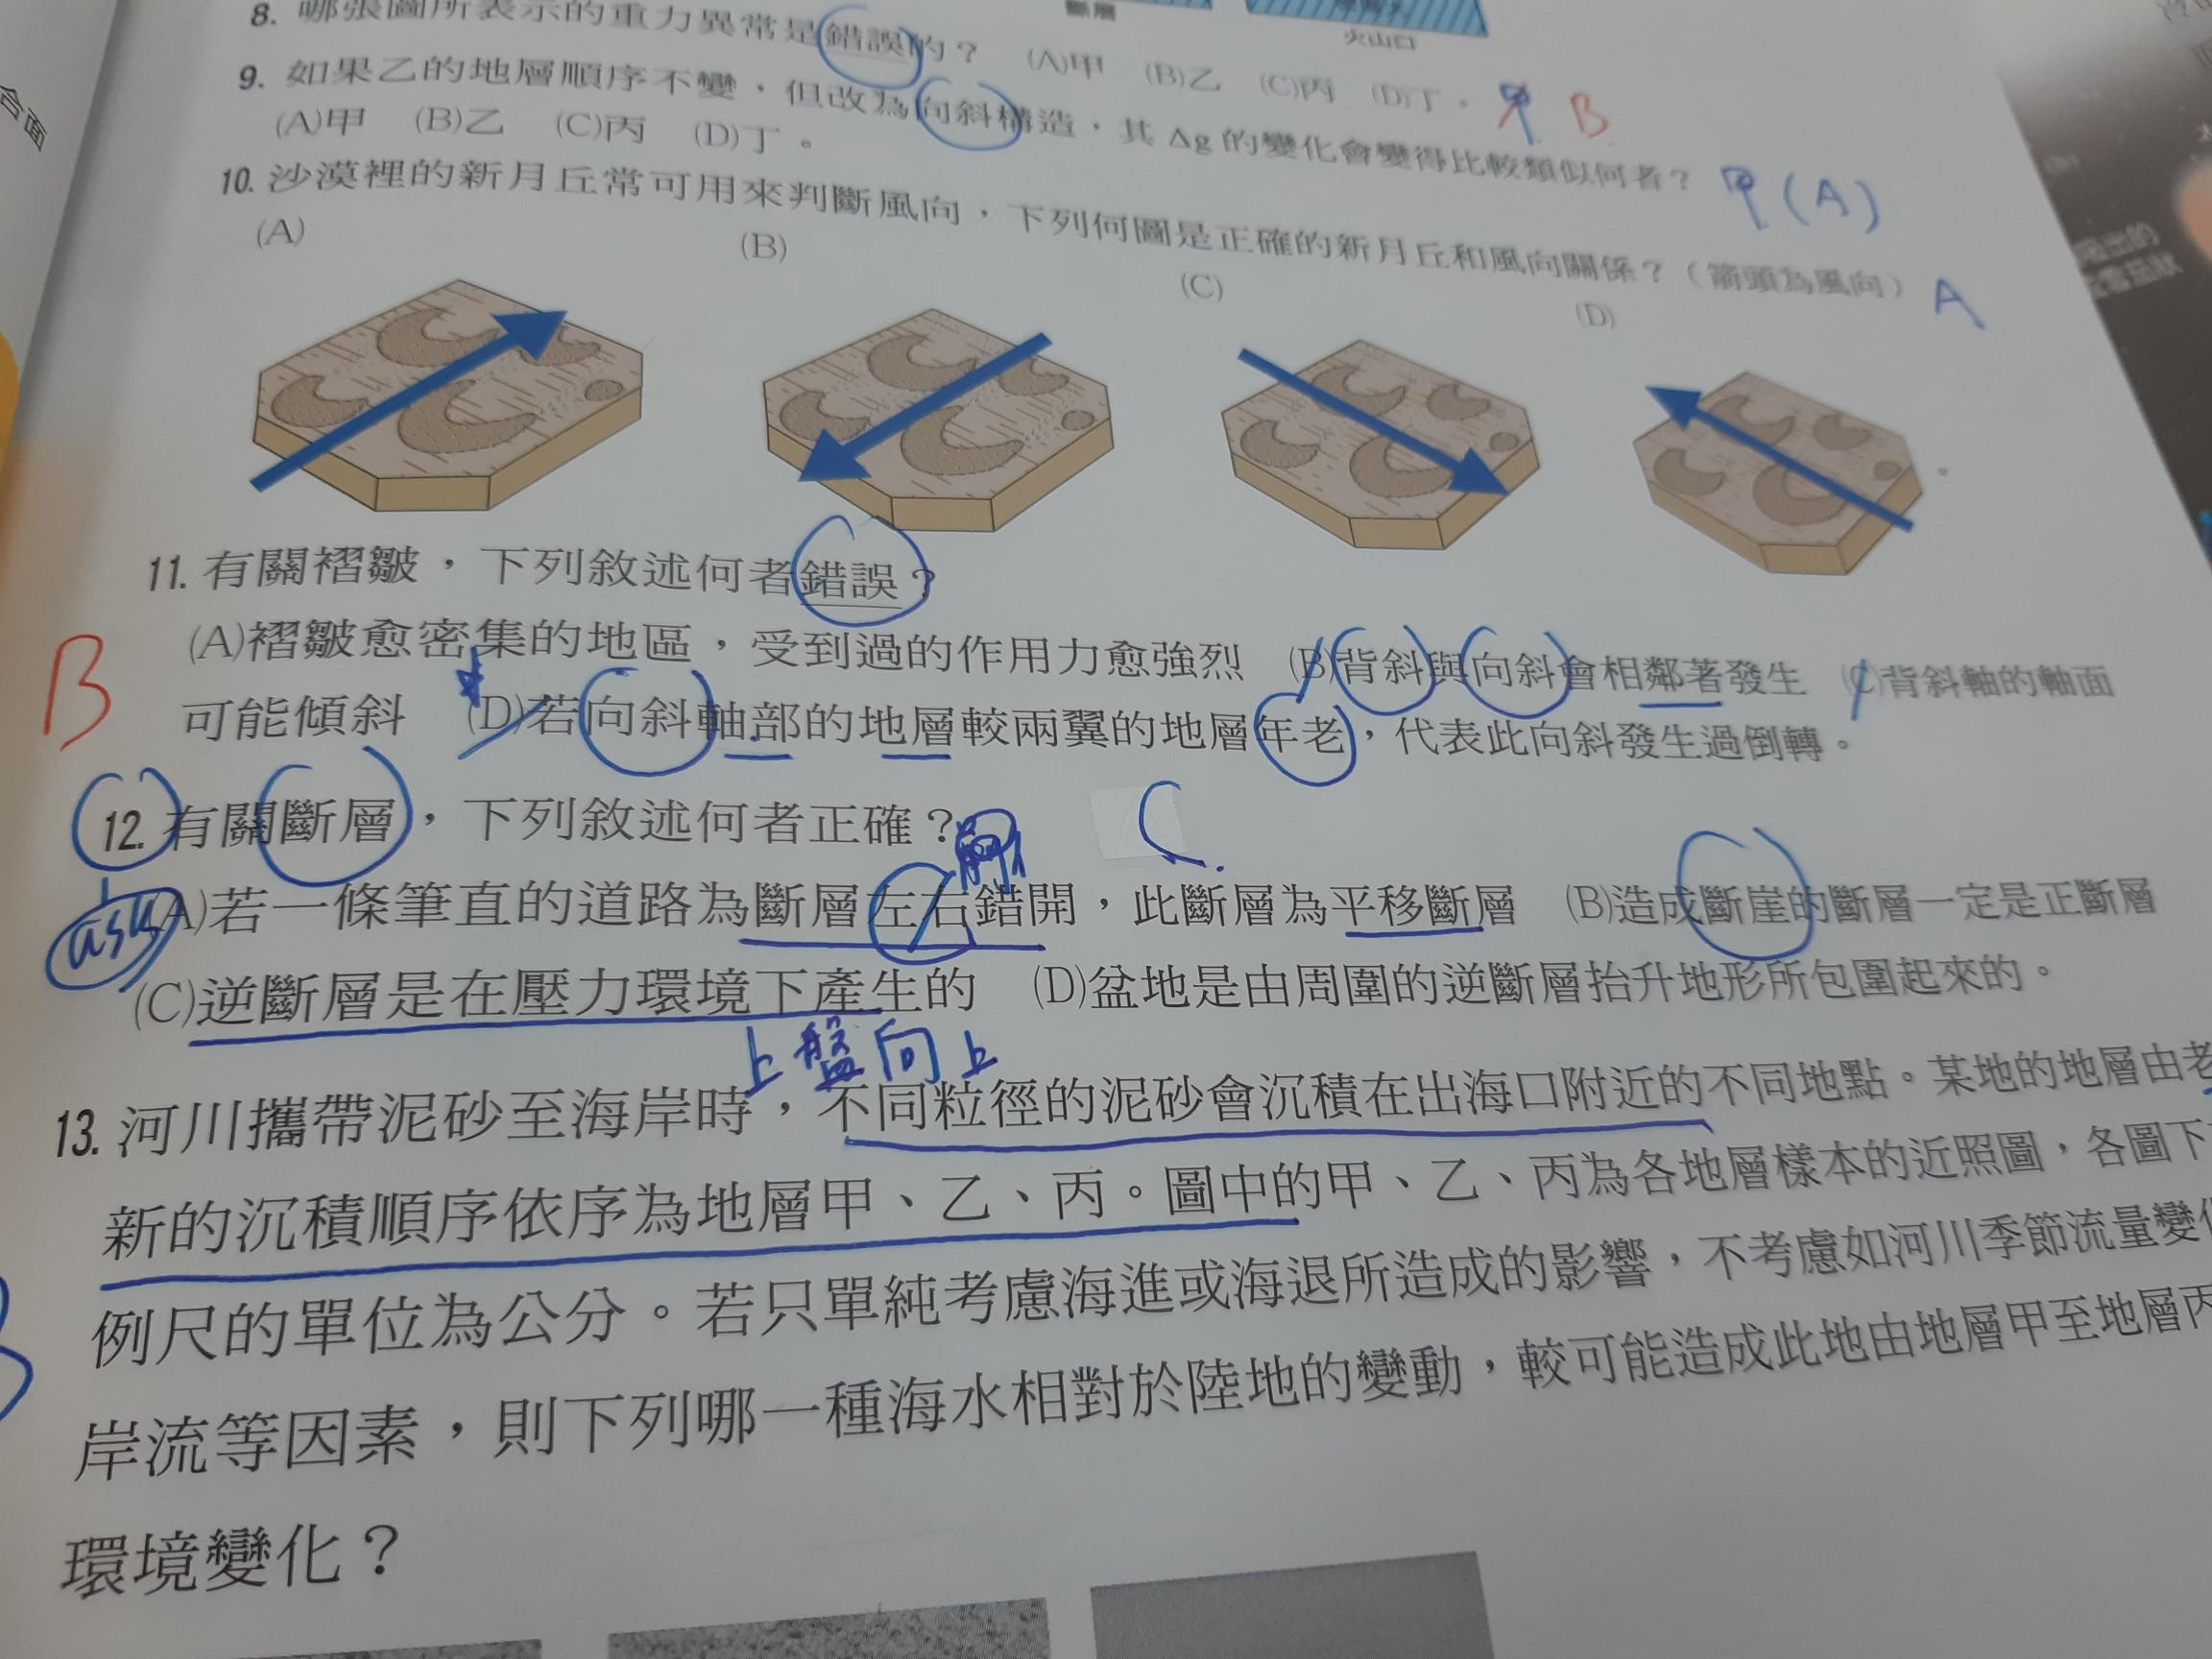 合面
斷層
火山口
8. 哪張圖所表示的重力異常是錯誤的？ (A)甲 (B)乙 (C)丙 (D)丁。 B
9. 如果乙的地層順序不變，但改為向斜構造，其 Δg 的變化會變得比較類似何者？ (A)
(A)甲 (B)乙 (C)丙 (D)丁。
10. 沙漠裡的新月丘常可用來判斷風向，下列何圖是正確的新月丘和風向關係？（箭頭為風向） A
(A) (B) (C) (D)
11. 有關褶皺，下列敘述何者錯誤？
(A)褶皺愈密集的地區，受到過的作用力愈強烈 (B)背斜與向斜會相鄰著發生 (C)背斜軸的軸面
B 可能傾斜 (D)若向斜軸部的地層較兩翼的地層年老，代表此向斜發生過倒轉。
12. 有關斷層，下列敘述何者正確？ C
ask (A)若一條筆直的道路為斷層左右錯開，此斷層為平移斷層 (B)造成斷崖的斷層一定是正斷層
(C)逆斷層是在壓力環境下產生的 (D)盆地是由周圍的逆斷層抬升地形所包圍起來的。
上盤向上
13. 河川攜帶泥砂至海岸時，不同粒徑的泥砂會沉積在出海口附近的不同地點。某地的地層由老
新的沉積順序依序為地層甲、乙、丙。圖中的甲、乙、丙為各地層樣本的近照圖，各圖下
例尺的單位為公分。若只單純考慮海進或海退所造成的影響，不考慮如河川季節流量變化
岸流等因素，則下列哪一種海水相對於陸地的變動，較可能造成此地由地層甲至地層丙
環境變化？